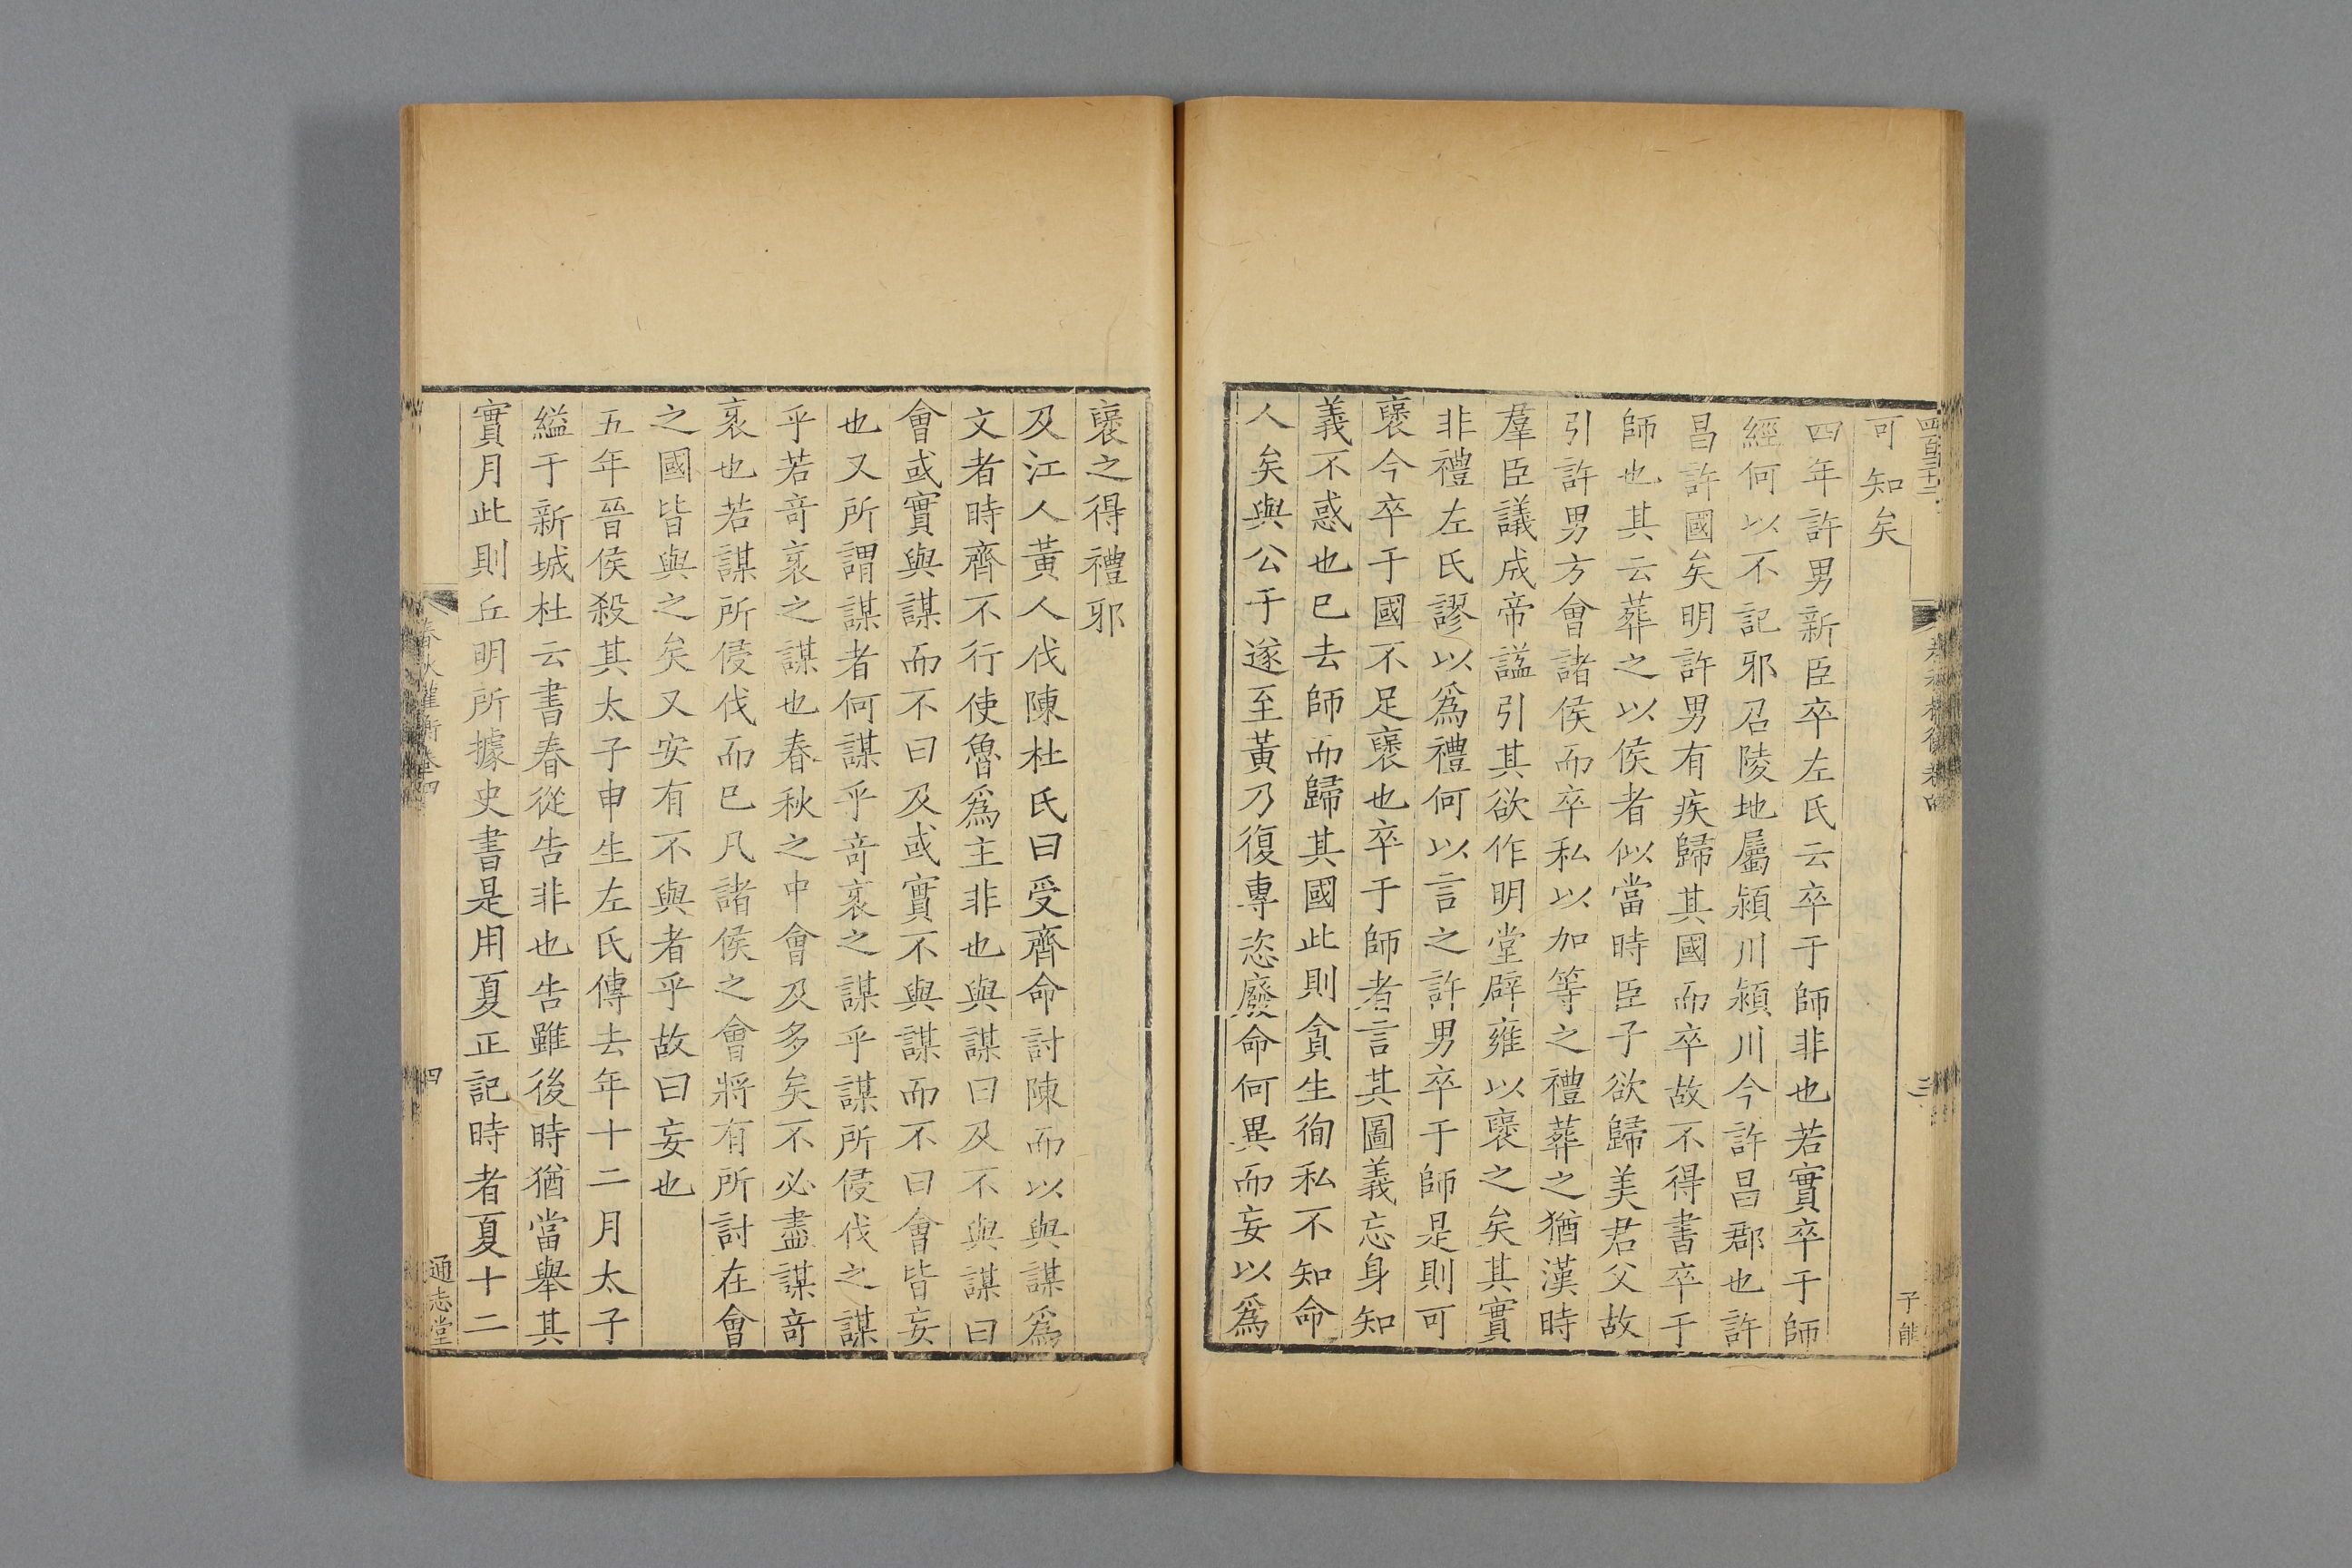 可知矣
四年許男新臣卒左氏云卒于師非也若實卒于師
經何以不記邪召陵地屬潁川潁川今許昌郡也許
昌許國矣明許男有疾歸其國而卒故不得書卒于
師也其云葬之以侯者似當時臣子欲歸美君父故
引許男方會諸侯而卒私以加等之禮葬之猶漢時
羣臣議成帝諡引其欲作明堂辟雍以襃之矣其實
非禮左氏謬以爲禮何以言之許男卒于師是則可
襃今卒于國不足襃也卒于師者言其圖義忘身知
義不惑也已去師而歸其國此則貪生徇私不知命
人矣與公子遂至黃乃復專恣廢命何異而妄以爲
襃之得禮邪
及江人黃人伐陳杜氏曰受齊命討陳而以與謀爲
文者時齊不行使魯爲主非也與謀曰及不與謀曰
會或實與謀而不曰及或實不與謀而不曰會皆妄
也又所謂謀者何謀乎竒衺之謀乎謀所侵伐之謀
乎若竒衺之謀也春秋之中會及多矣不必盡謀竒
衺也若謀所侵伐而已凡諸侯之會將有所討在會
之國皆與之矣又安有不與者乎故曰妄也
五年晉侯殺其太子申生左氏傳去年十二月太子
縊于新城杜云書春從告非也告雖後時猶當舉其
實月此則丘明所據史書是用夏正記時者夏十二
春秋權衡卷四
四
通志堂